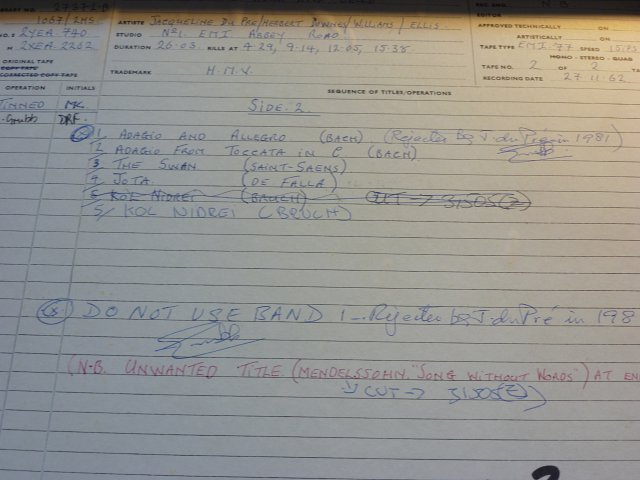 LIBRARY NO. 2737-2-B
1037/2HS
2YEA 740
2XEA 2262
ARTISTE JACQUELINE DU PRE/HERBERT DOWNES/WILLIAMS/ELLIS
STUDIO Nº1. EMI ABBEY ROAD
DURATION 26.03. RILLS AT 4.29, 9.14, 12.05, 15.38
TRADEMARK H.M.V.
EDITOR N.B.
APPROVED TECHNICALLY ON
ARTISTICALLY ON
TAPE TYPE EMI.77 SPEED 15IPS
MONO - STEREO - QUAD
TAPE NO. 2 OF 2
RECORDING DATE 27.11.62
ORIGINAL TAPE
COPY TAPE
CORRECTED COPY TAPE
OPERATION INITIALS
SEQUENCE OF TITLES/OPERATIONS
TINNED MK.
DRF.
SIDE. 2
1. ADAGIO AND ALLEGRO (BACH) (Rejected by J. du Pré in 1981)
2 ADAGIO FROM TOCCATA IN C. (BACH)
3 THE SWAN (SAINT-SAENS)
4 JOTA (DE FALLA)
5 KOL NIDREI (BRUCH) CUT → 31505(Z)
5/ KOL NIDREI (BRUCH)
DO NOT USE BAND 1 - Rejected by J. du Pré in 198
(N.B. UNWANTED TITLE (MENDELSSOHN. "SONG WITHOUT WORDS") AT EN
CUT → 31505(Z)